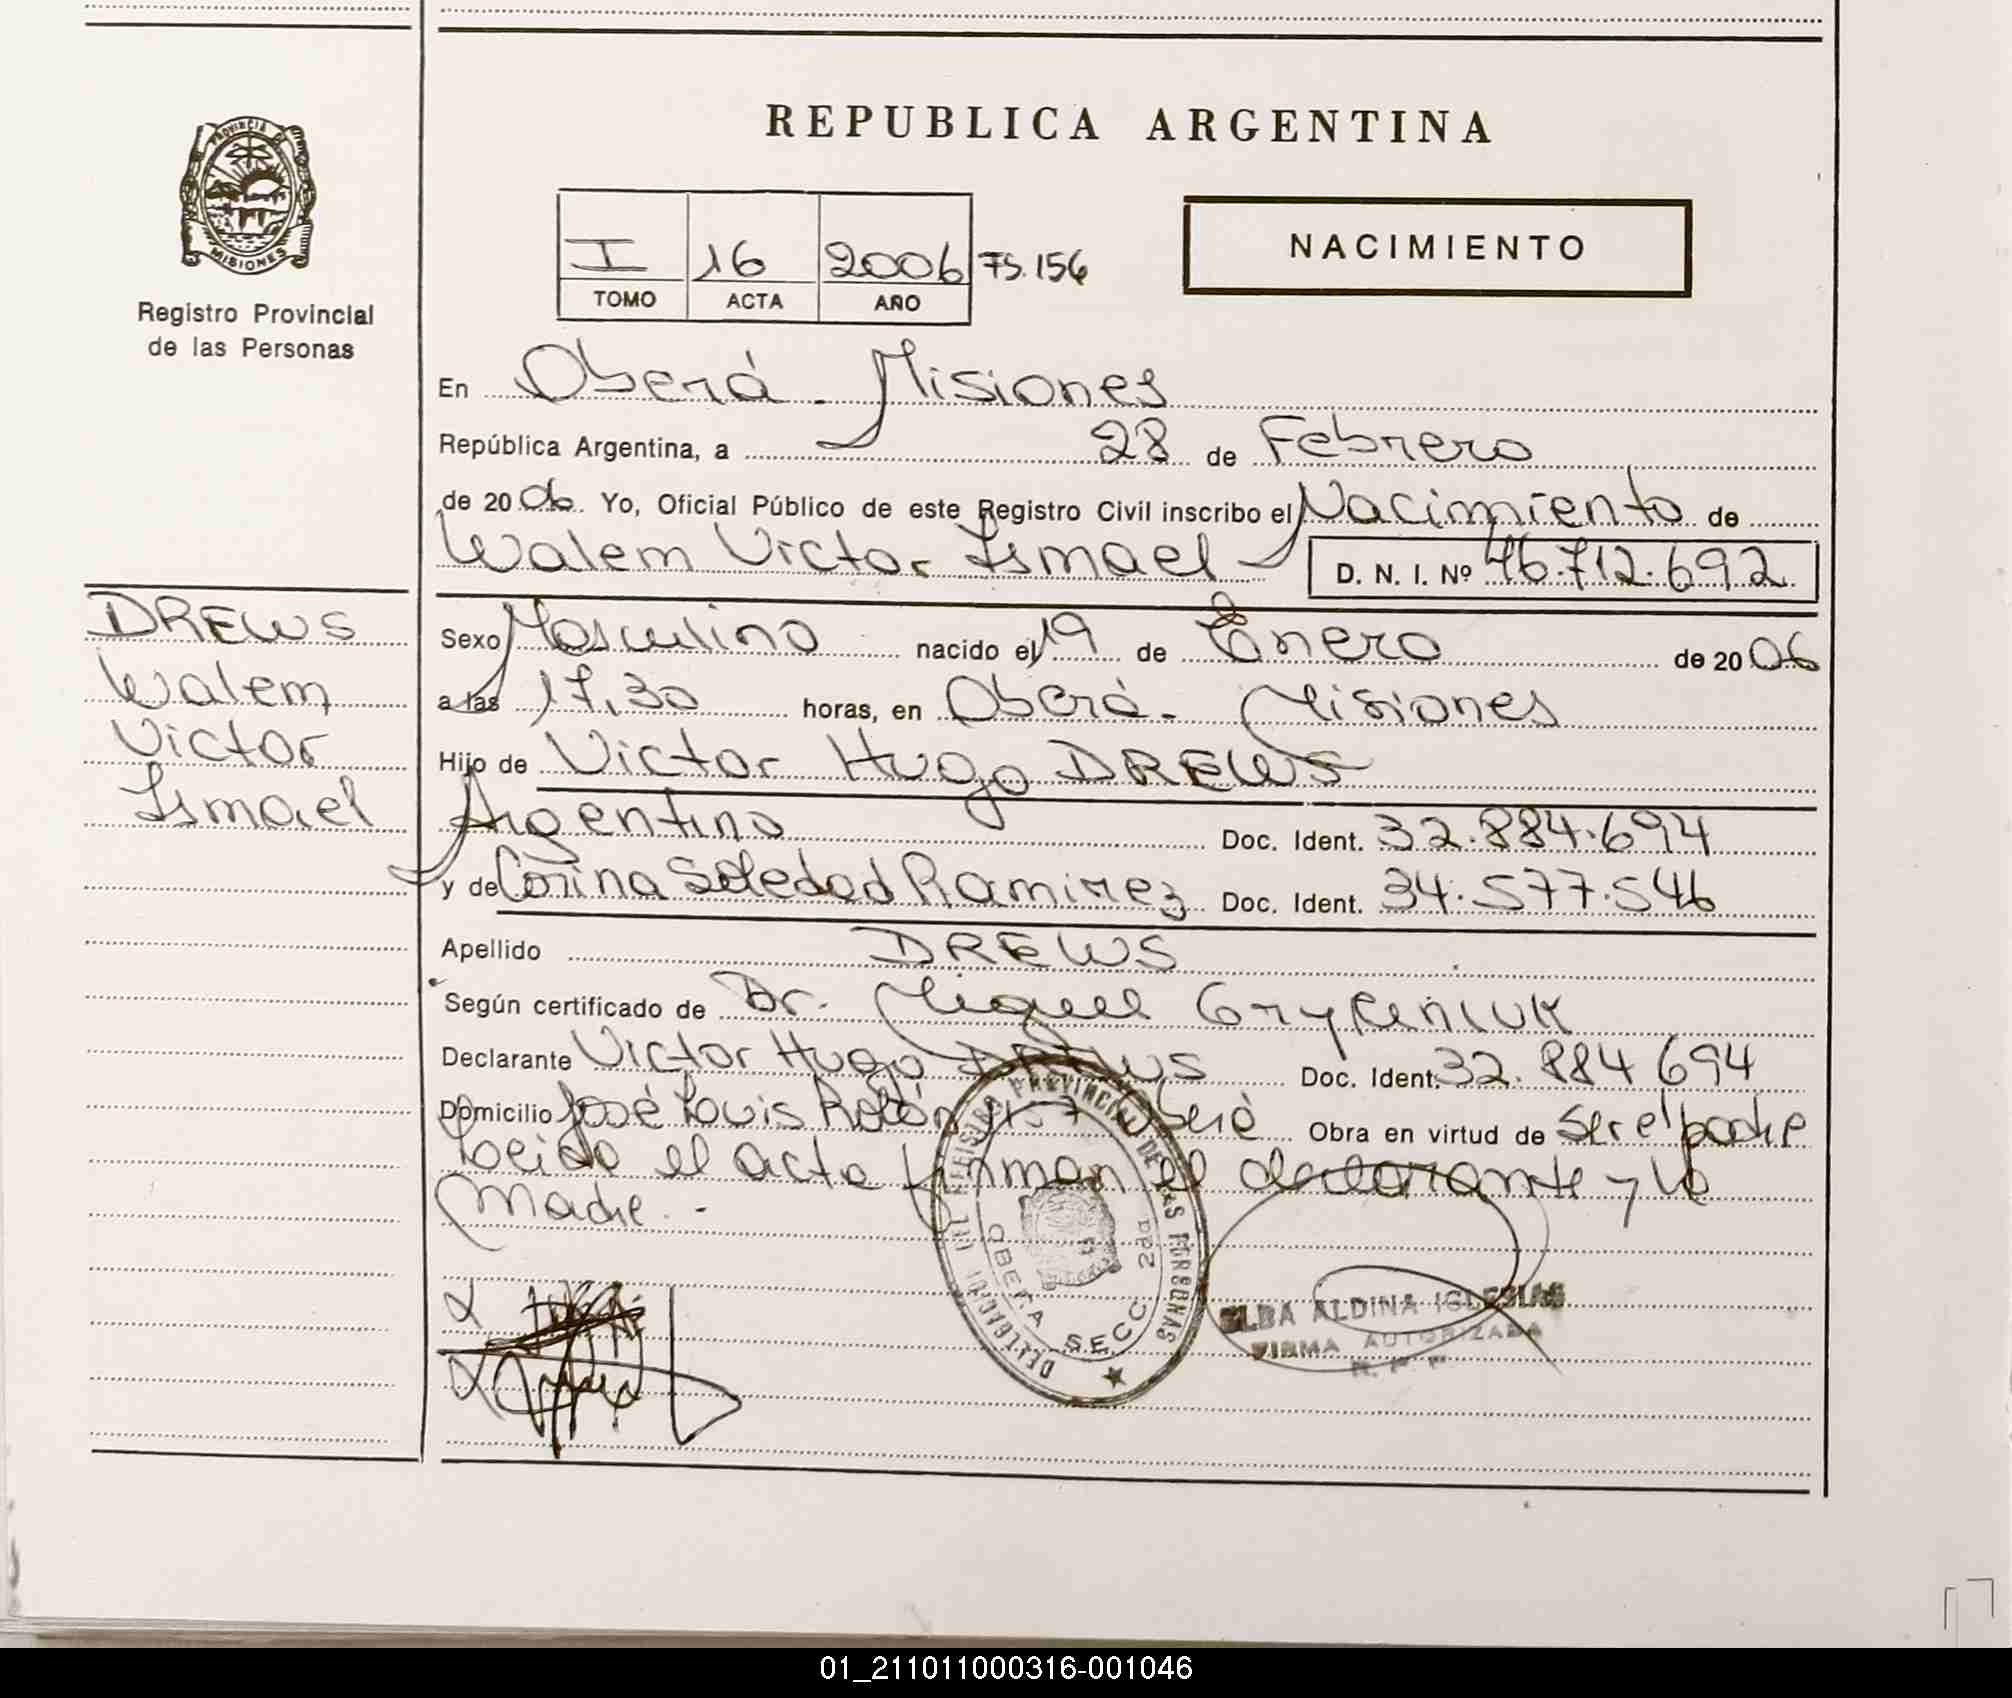 REPUBLICA ARGENTINA
PROVINCIA DE
MISIONES
Registro Provincial
de las Personas
I 16 2006 75.156
TOMO ACTA AÑO
NACIMIENTO
En Oberá - Misiones
República Argentina, a 28 de Febrero
de 2006 Yo, Oficial Público de este Registro Civil inscribo el Nacimiento de
Walem Victor Ismael D. N. I. Nº 46.712.692
DREWS
Walem
Victor
Ismael
Sexo Masculino nacido el 19 de Enero de 2006
a las 17,30 horas, en Oberá - Misiones
Hijo de Victor Hugo DREWS
Argentino Doc. Ident. 32.884.694
y de Corina Soledad Ramirez Doc. Ident. 34.577.546
Apellido DREWS
Según certificado de Dr. Miguel
Declarante Victor Hugo DREWS Doc. Ident. 32.884694
Domicilio José Louis Oberá Obra en virtud de ser el padre
Leida el acta firman el declarante y la
Madre.-
DELEGACION DEL REGISTRO PROVINCIAL DE LAS PERSONAS
OBERA SECC. 2DA
ELBA ALDINA IGLESIAS
FIRMA AUTORIZADA
R. P. P.
01_211011000316-001046